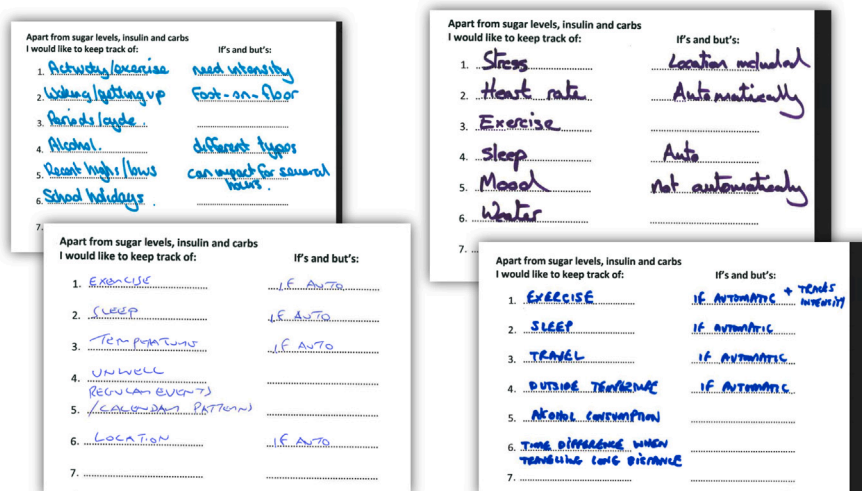 Apart from sugar levels, insulin and carbs
I would like to keep track of: If's and but's:
1. Activity/exercise need intensity
2. Waking/getting up Foot-on-floor
3. Periods/cycle.
4. Alcohol. different types
5. Recent highs/lows can impact for several
hours.
6. School holidays.
7.
Apart from sugar levels, insulin and carbs
I would like to keep track of: If's and but's:
1. Stress Location included
2. Heart rate Automatically
3. Exercise
4. Sleep Auto
5. Mood not automatically
6.
7.
Apart from sugar levels, insulin and carbs
I would like to keep track of: If's and but's:
1. EXERCISE IF AUTO
2. SLEEP IF AUTO
3. TEMPERATURE IF AUTO
4. UNWELL
REGULAR EVENTS
5. /CALENDAR PATTERNS
6. LOCATION IF AUTO
7.
Apart from sugar levels, insulin and carbs
I would like to keep track of: If's and but's:
1. EXERCISE IF AUTOMATIC + TRACKS
INTENSITY
2. SLEEP IF AUTOMATIC
3. TRAVEL IF AUTOMATIC
4. OUTSIDE IF AUTOMATIC
5. ALCOHOL CONSUMPTION
6. TIME DIFFERENCE WHEN
TRAVELLING LONG DISTANCE
7.